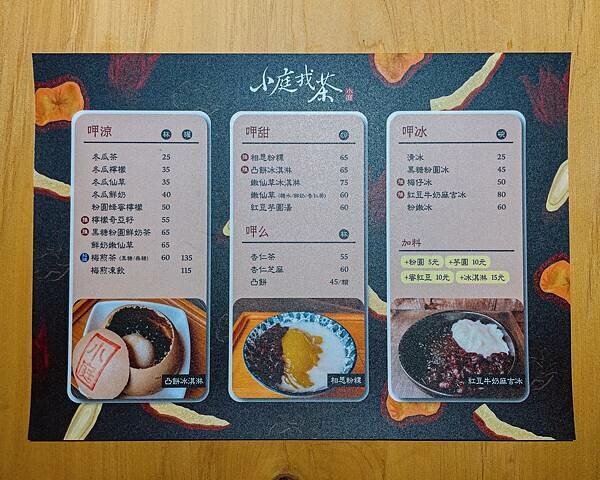 小庭找茶
小庭
呷涼 杯 罐
冬瓜茶 25
冬瓜檸檬 35
冬瓜仙草 35
冬瓜鮮奶 40
粉圓蜂蜜檸檬 50
檸檬奇亞籽 55
黑糖粉圓鮮奶茶 65
鮮奶嫩仙草 65
梅煎茶(黑糖/蔗糖) 60 135
梅煎凍飲 115
小庭
凸餅冰淇淋
呷甜
相思粉粿 65
凸餅冰淇淋 65
嫩仙草冰淇淋 75
嫩仙草(糖水/鮮奶/杏仁茶) 60
紅豆芋圓湯 60
呷么 杯
杏仁茶 55
杏仁芝麻 60
凸餅 45/
相思粉粿
呷冰 碗
清冰 25
黑糖粉圓冰 45
梅仔冰 50
紅豆牛奶麻吉冰 80
粉嫩冰 60
加料
+粉圓 5元 +芋圓 10元
+蜜紅豆 10元 +冰淇淋 15元
紅豆牛奶麻吉冰